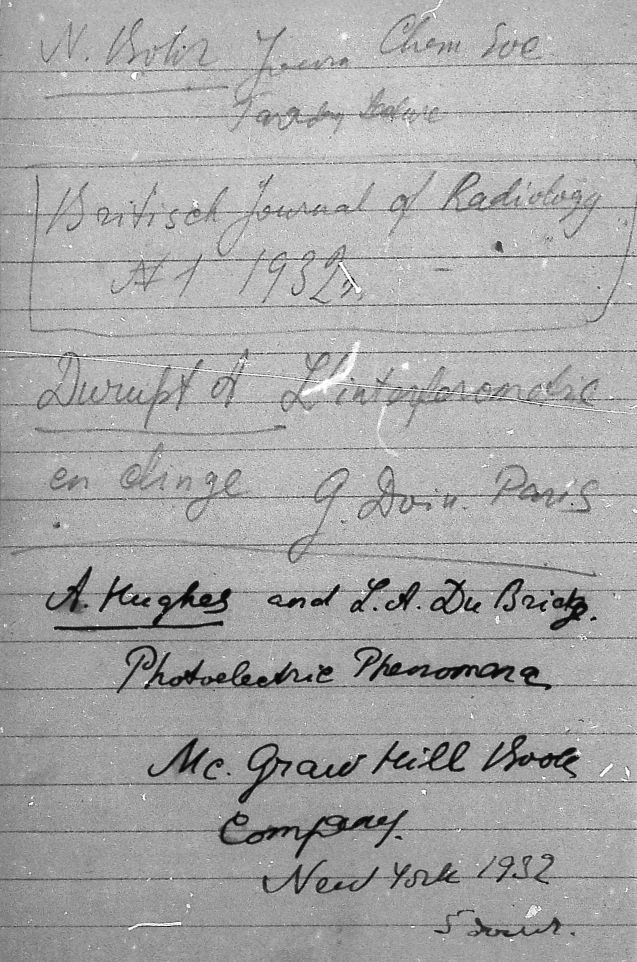 N. Bohr Journ Chem Soc
Faraday Lecture
Britisch Journal of Radiology
№ 1 1932г.
Durupt A L'interferometrie
en
G. Doin. Paris
A. Hughes and L.A. Du Bridge.
Photoelectric Phenomena
Mc. Graw Hill Book
Company.
New York 1932
5 долл.